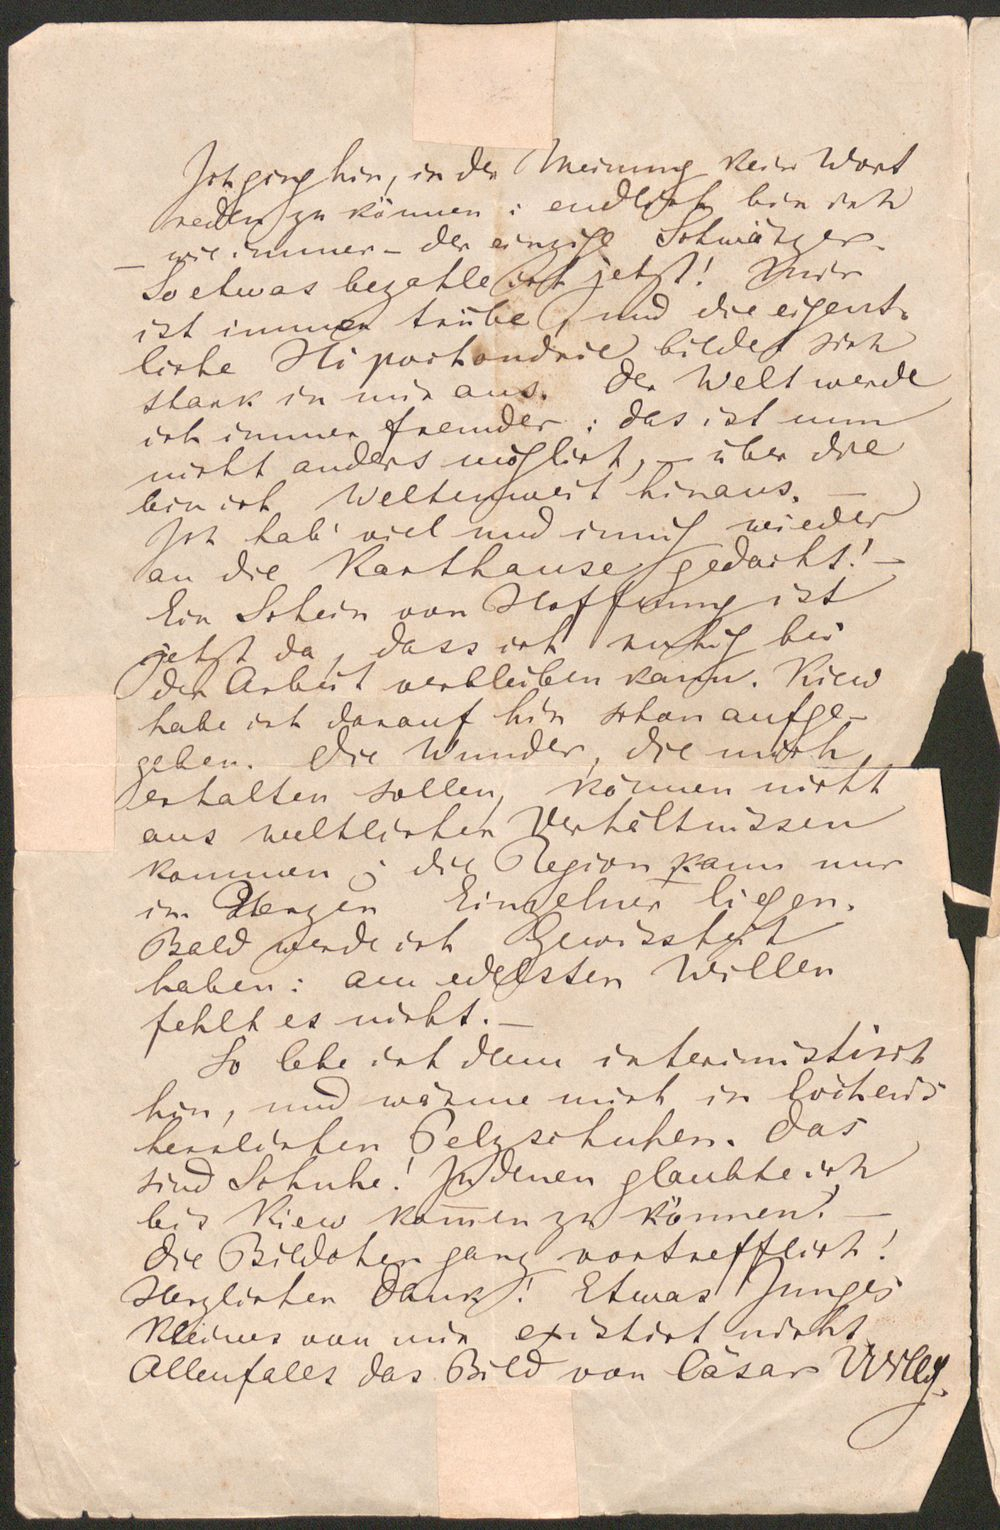 Ich ging hin, in der Meinung kein Wort
reden zu können: endlich bin ich
– wie immer – der einzige Schwätzer.
So etwas bezahle ich jetzt! Mir
ist immer trübe, und die eigent-
liche Hipochondrie bildet sich
stark in mir aus. Der Welt werde
ich immer fremder: das ist nun
nicht anders möglich, – über die
bin ich Weltenweit hinaus. –
Ich hab' viel und innig wieder
an die Karthause gedacht! –
Ein Schein von Hoffnung ist
jetzt da, dass ich ruhig bei
der Arbeit verbleiben kann. Kiew
habe ich darauf hin schon aufge-
geben. Die Wunder, die mich
erhalten sollen, können nicht
aus weltlichen Verhältnissen
kommen; die Region kann nur
im Herzen Einzelner liegen.
Bald werde ich Gewissheit
haben: am edelsten Willen
fehlt es nicht. –
So lebe ich denn interimistisch
hin, und wärme mich in
herrlichen Pelzschuhen. Das
sind Schuhe! In denen glaubte ich
bis Kiew kom̅en zu können. –
Die Bildchen ganz vortrefflich!
Herzlichen Dank! Etwas Junges
Kleines von mir existirt nicht
Allenfalls das Bild von Cäsar Willig.